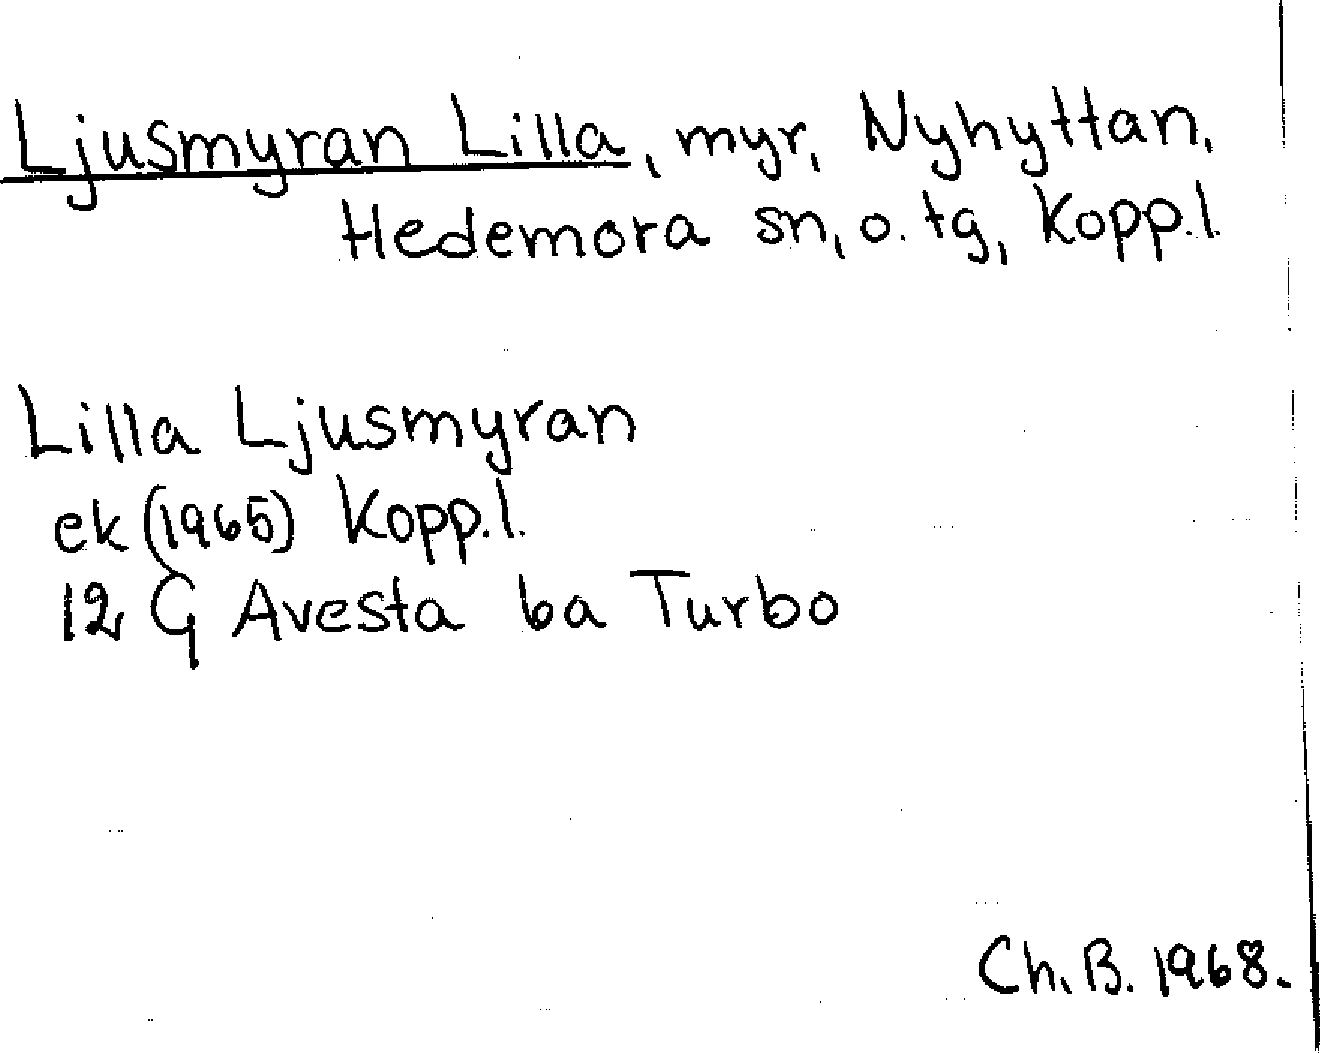 Ljusmyran Lilla, myr, Nyhyttan,
Hedemora sn, o. tg, Kopp.l.
Lilla Ljusmyran
ek (1965) Kopp.l.
12 G Avesta 6a Turbo
Ch. B. 1968.